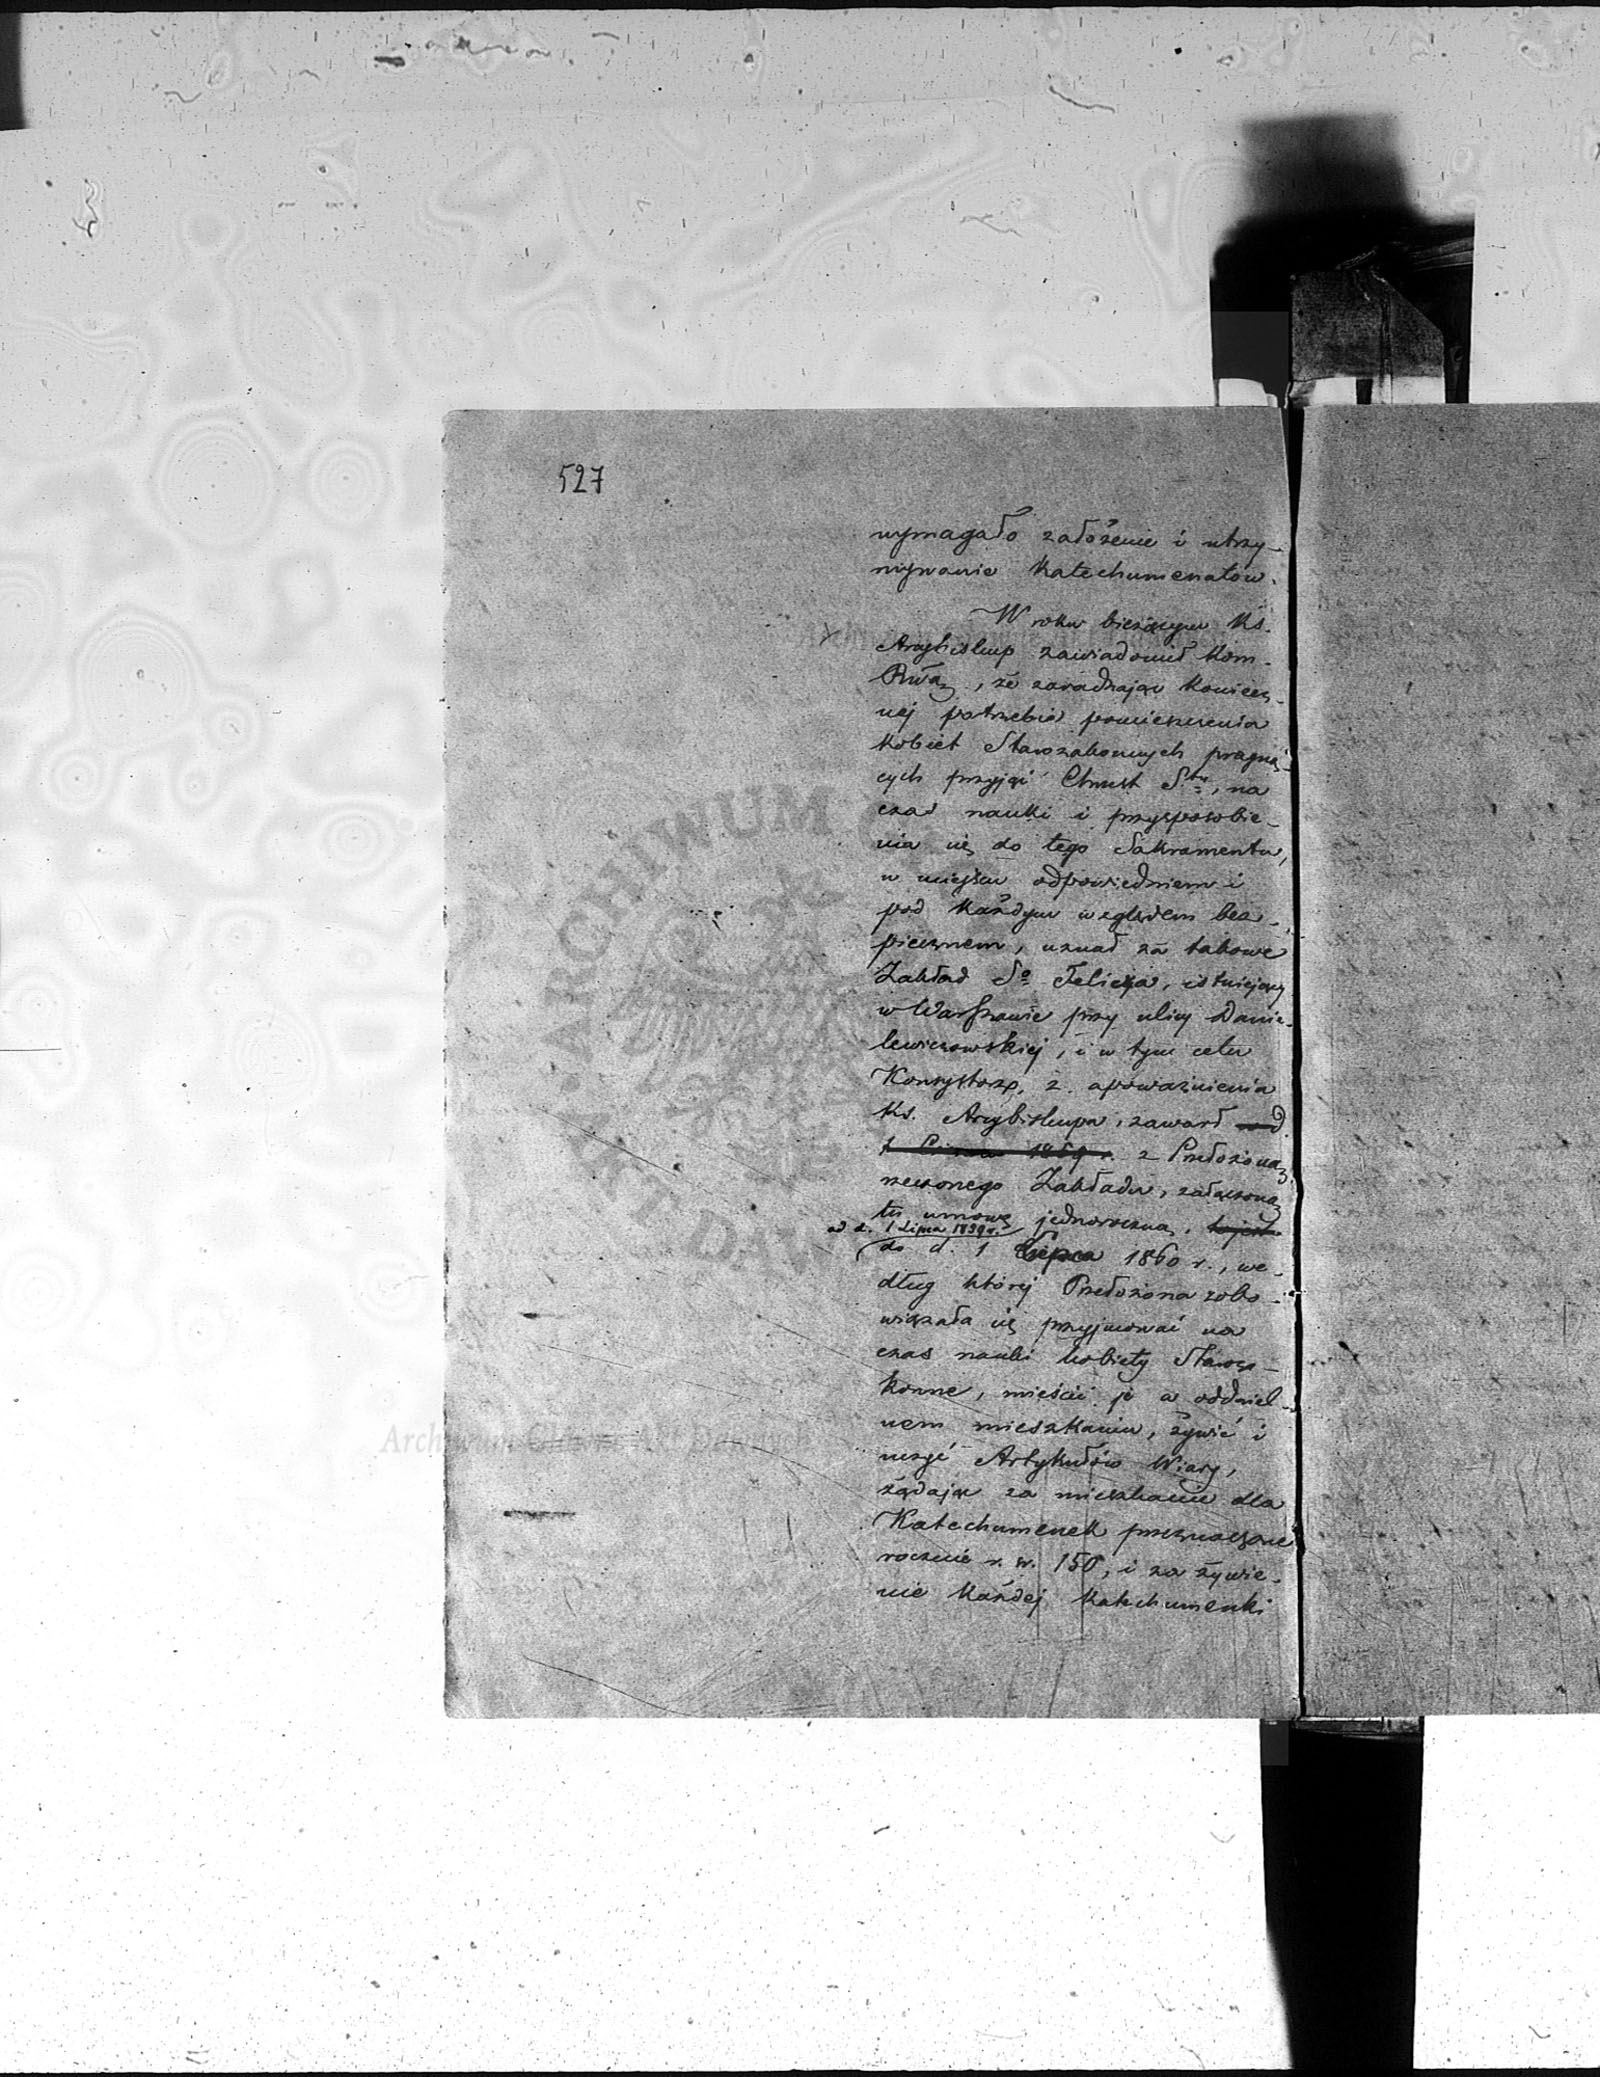 527
wymagało założenie i utrzy-
mywanie Katechumenatów.
W roku bieżącym Ks.
Arcybiskup zawiadomił Kom.
Rwą, że zaradzając koniecz-
nej potrzebie pomieszczenia
kobiet Starozakonnych pragną-
cych przyjąć Chrzest Sty, na
czas nauki i przysposobie-
nia się do tego Sakramentu,
w miejscu odpowiedniem i
pod każdym względem bez-
piecznem, uznał za takowe
Zakład Sgo Felicyja, istniejący
w Warszawie przy ulicy Danie-
lewiczowskiej, i w tym celu
Konsystorz, z upoważnienia
Ks. Arcybiskupa, zawarł od
1 1859 r. z Przełożoną
rzeczonego Zakładu, załączoną
tu umowę jednoroczną, to jest
od d. 1 Lipca 1859 r.
do d. 1 Lipca 1860 r., we-
dług której Przełożona zobo-
wiązała się przyjmować na
czas nauki kobiety Staroza-
konne, mieścić je w oddziel-
nem mieszkaniu, żywić i
uczyć Artykułów Wiary,
żądając za mieszkanie dla
Katechumenek przeznaczone
rocznie r. sr. 150, i za żywie-
nie każdej katechumenki
ARCHIWUM GŁÓWNE AKT DAWNYCH
Archiwum Główne Akt Dawnych